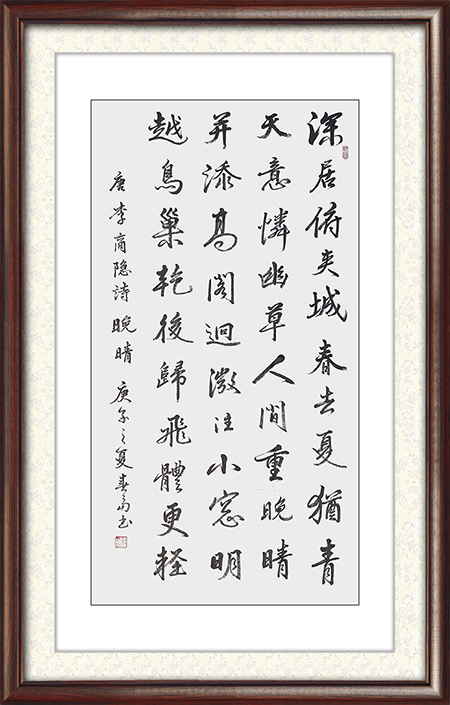 深居俯夹城春去夏猶青
天意憐幽草人間重晚晴
并添高閣迥微注小窓明
越鳥巢乾後歸飛體更軽
唐李商隐詩晚晴 庚子之夏春